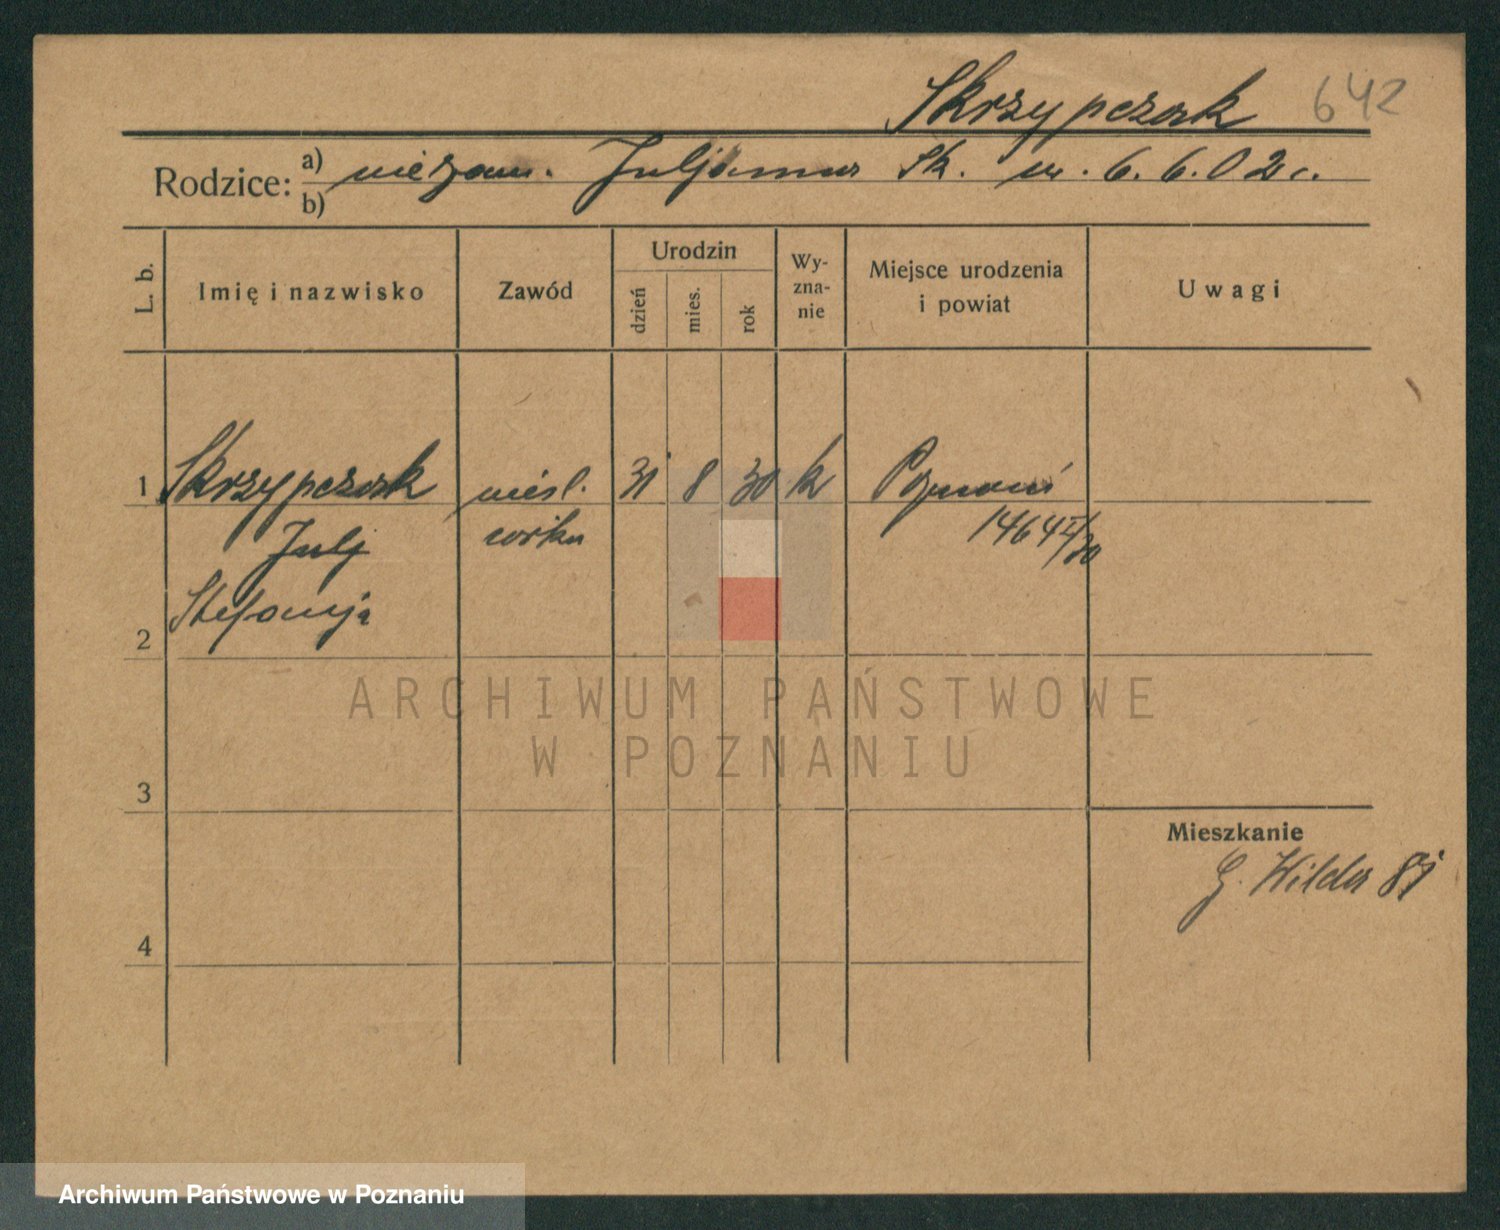 Skrzypczak 642
Rodzice: a) niezam. Juljanna Sk. ur. 6. 6. 02 r.
b)
L. b. Imię i nazwisko Zawód Urodzin dzień mies. rok Wy-zna-nie Miejsce urodzenia i powiat Uwagi
1 Skrzypczak 31 8 30 k Poznań
Julj 1464 II/30
Stefanja
2
3
4
Mieszkanie
G. Wilda
ARCHIWUM PAŃSTWOWE
W POZNANIU
Archiwum Państwowe w Poznaniu